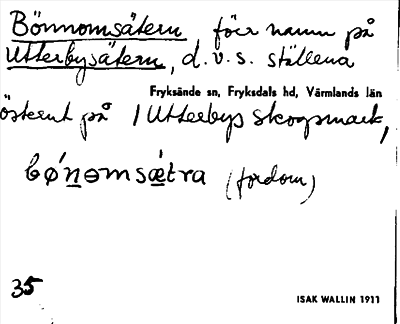 Bönnomsätern, förr namn på
Utterbysätern, d.v.s. ställena
Fryksände sn, Fryksdals hd, Värmlands län
österut på Utterbys skogsmark,
bǿnəmsǽtra (fordom)
35
ISAK WALLIN 1911